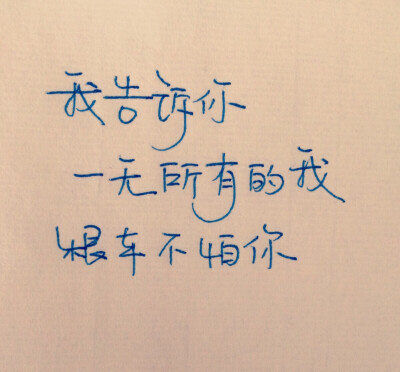 我告诉你
一无所有的我
根车不怕你